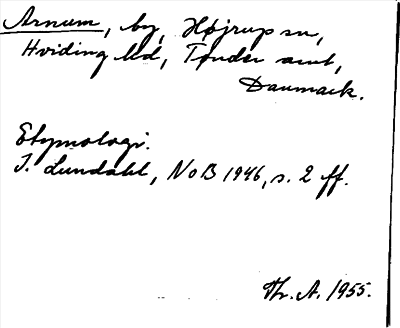 Arnum, by, Højrup sn,
Hviding hd, Tønder amt,
Danmark.
Etymologi.
I. Lundahl, NoB 1946, s. 2 ff.
Th. A. 1955.